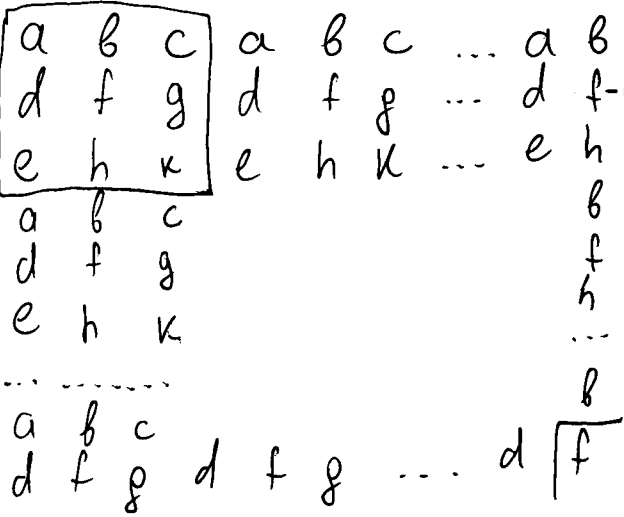 a b c a b c ... a b
d f g d f g ... d f
e h k e h k ... e h
a b c b
d f g f
e h k h
... ....... ...
a b c b
d f g d f g ... d f